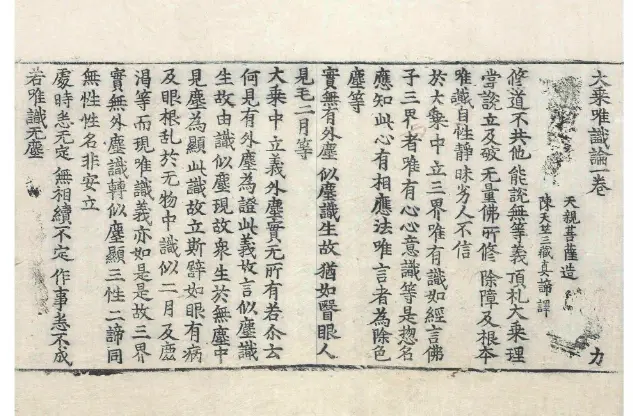 大乗唯識論一卷
力
天親菩薩造
陳天竺三藏真諦譯
修道不共他 能説無等義 頂札大乗理
當説立及破 无量佛所修 除障及根本
唯識自性靜 昧劣人不信
於大乗中立三界唯有識如經言佛
子三界者唯有心心意識等是惣名
應知此心有相應法唯言者為除色
塵等
實無有外塵 似塵識生故 猶如瞖眼人
見毛二月等
大乗中立義外塵實无所有若尒云
何見有外塵為證此義故言似塵識
生故由識似塵現故衆生於無塵中
見塵為顯此識故立斯譬如眼有病
及眼根乱於无物中識似二月及鹿
渇等而現唯識義亦如是是故三界
實無外塵識轉似塵顯三性二諦同
無性性名非安立
處時悉无定 無相續不定 作事悉不成
若唯識无塵